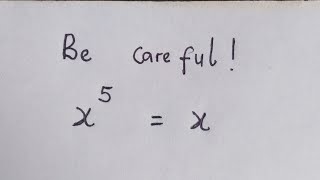 Be careful!
x⁵ = x